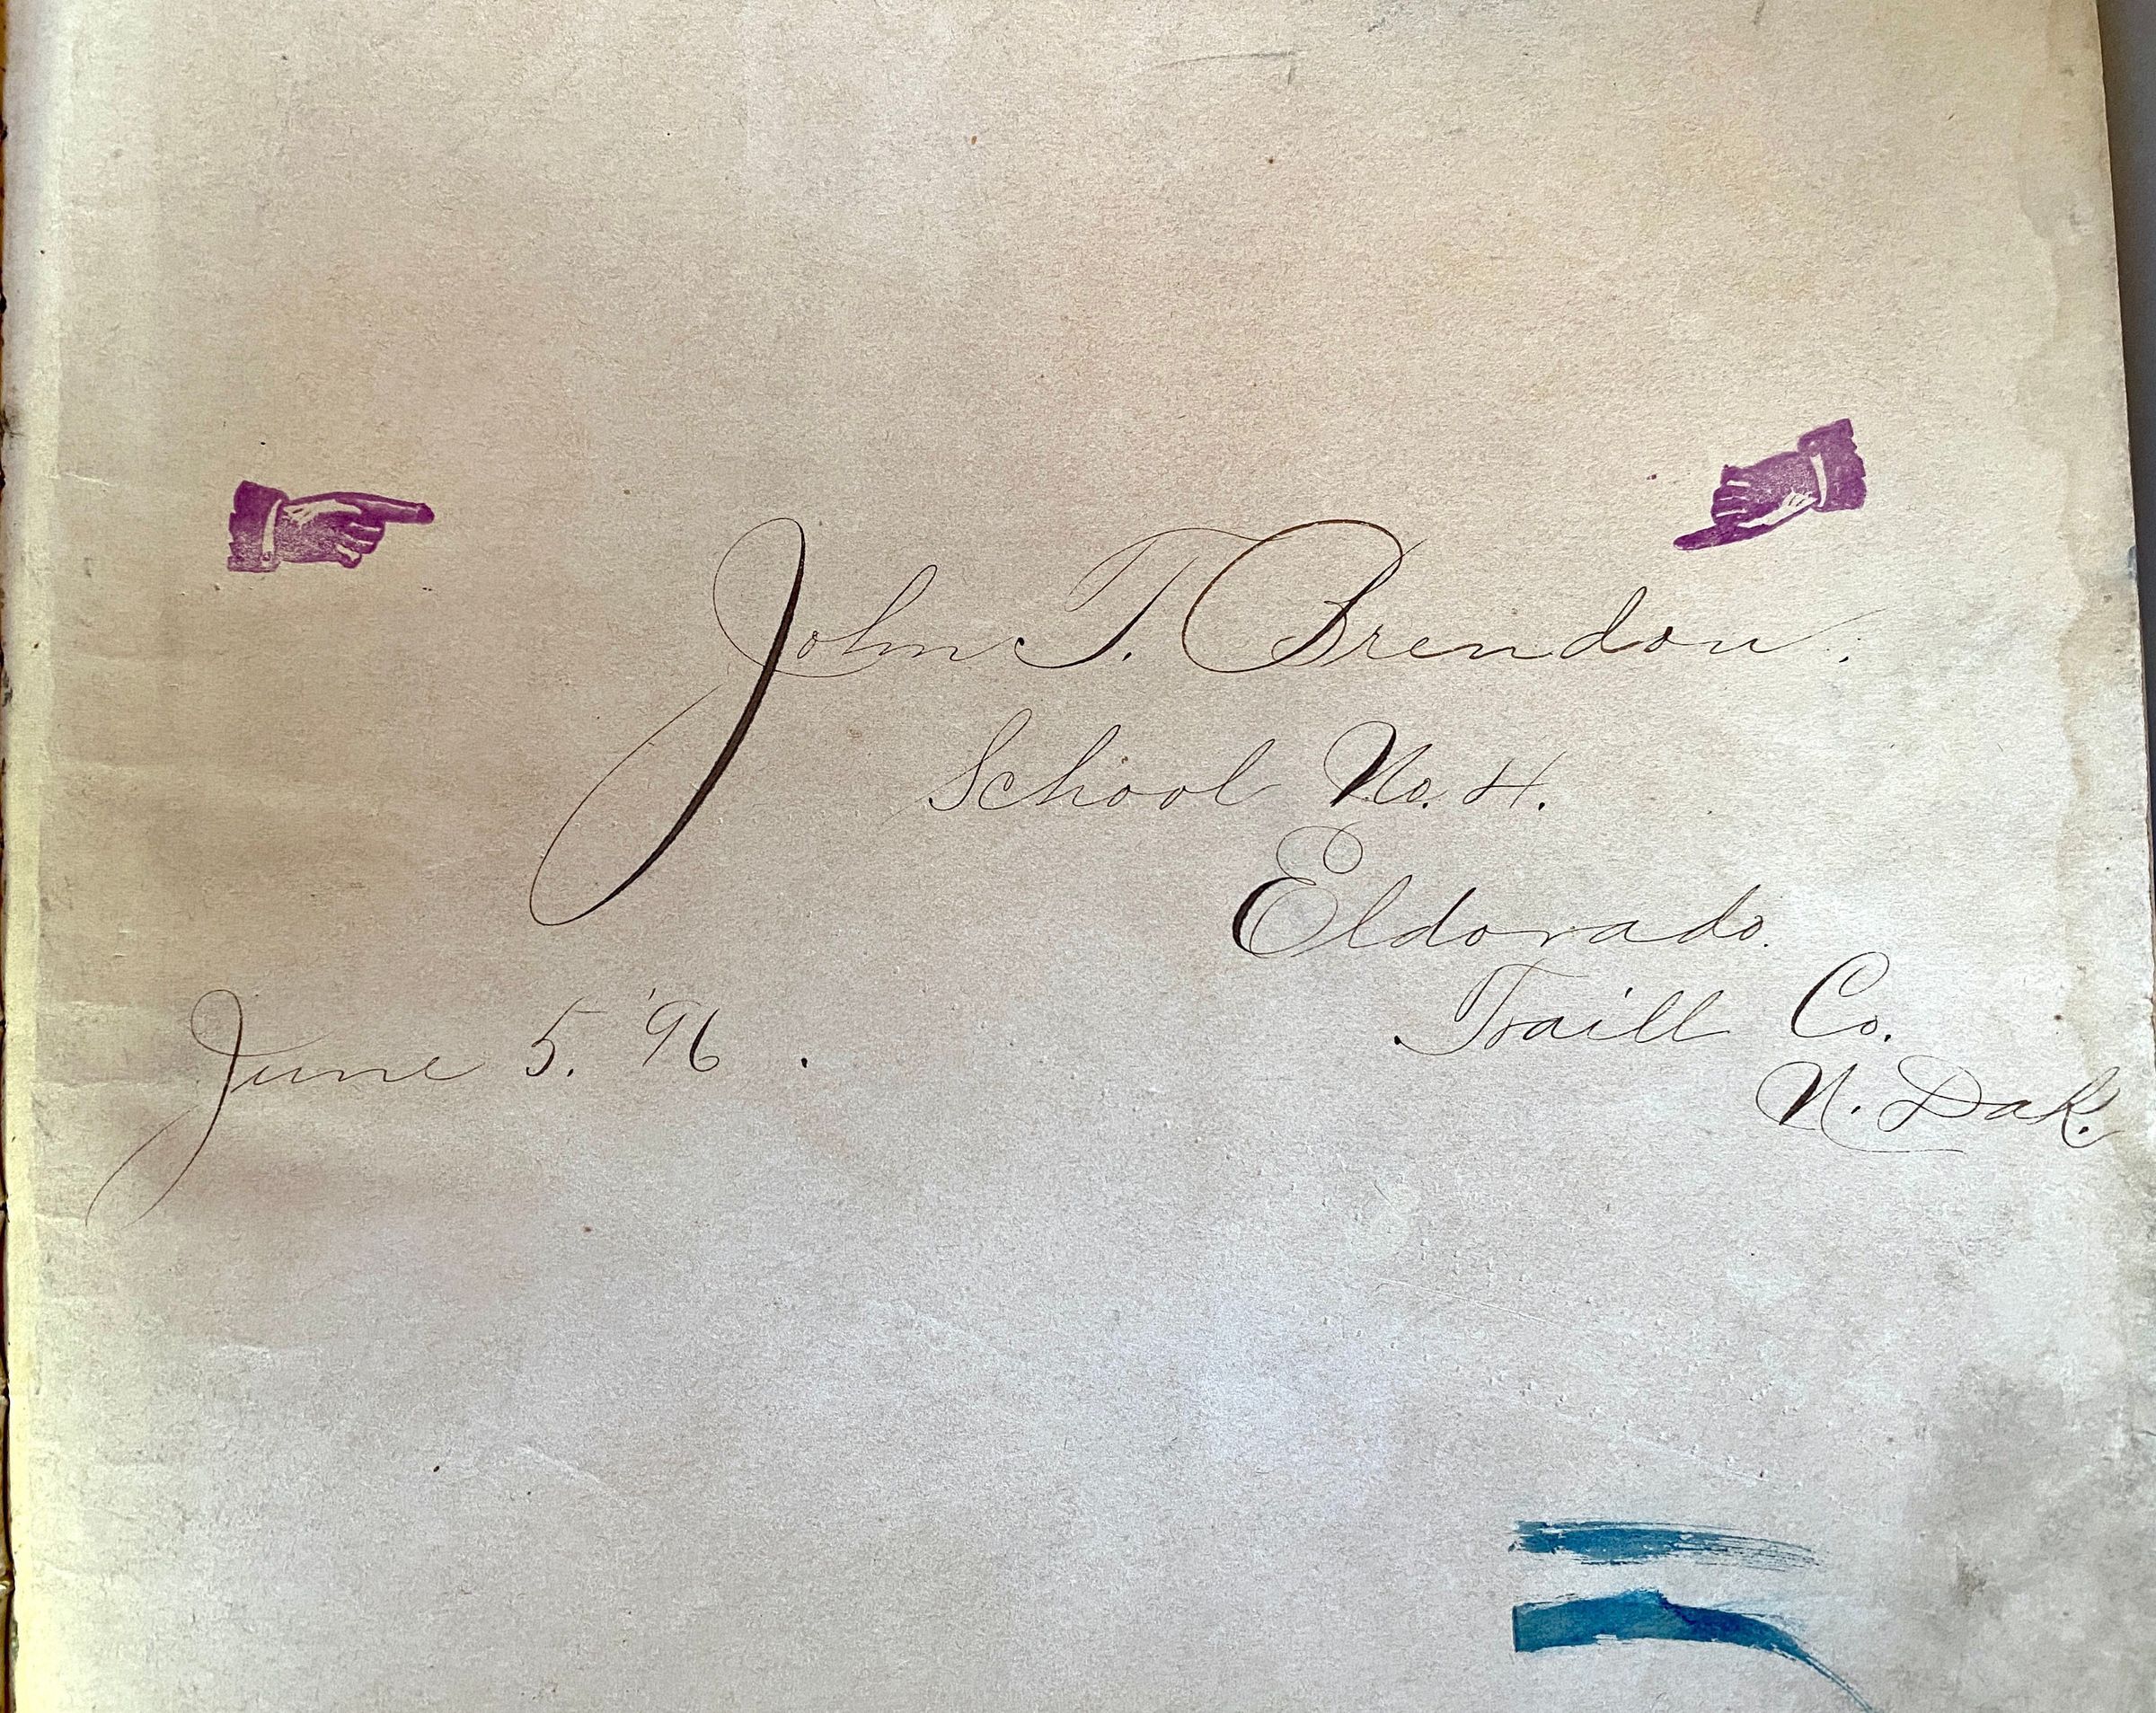 John T. Brendon.
School No. 4.
Eldorado.
Traill Co.
N. Dak.
June 5. '96.